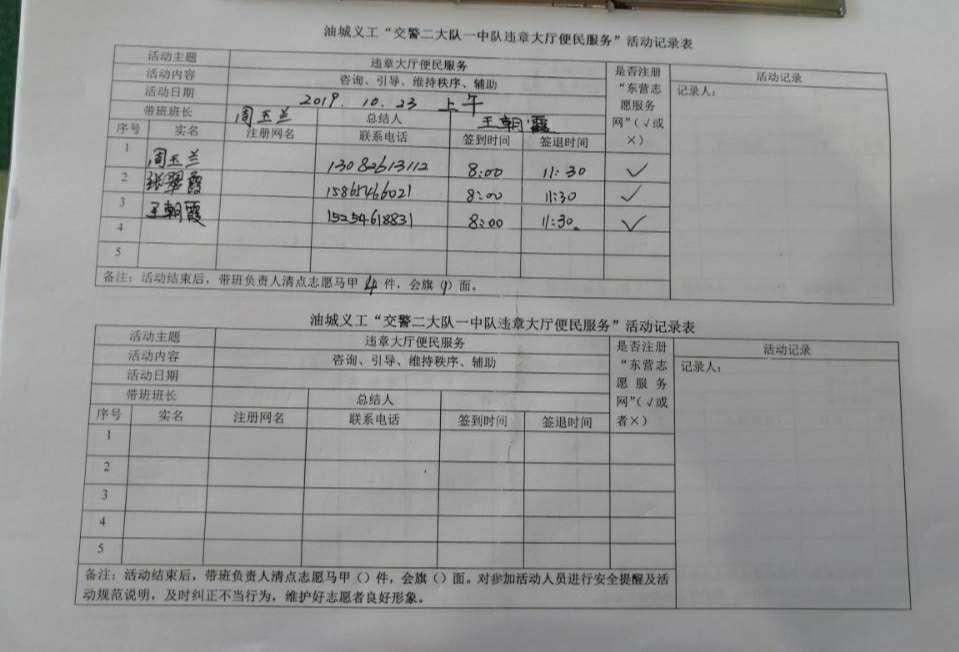 油城义工“交警二大队一中队违章大厅便民服务”活动记录表
活动主题 违章大厅便民服务 是否注册“东营志愿服务网”(√或×) 活动记录
活动内容 咨询、引导、维持秩序、辅助 记录人:
活动日期 2019.10.23 上午
带班班长 周玉兰 总结人 王朝霞
序号 实名 注册网名 联系电话 签到时间 签退时间
1 周玉兰 13082613112 8:00 11:30 √
2 张翠霞 15865466021 8:00 11:30 √
3 王朝霞 15254618831 8:00 11:30. √
4
5
备注:活动结束后,带班负责人清点志愿马甲 4 件,会旗(1)面。
油城义工“交警二大队一中队违章大厅便民服务”活动记录表
活动主题 违章大厅便民服务 是否注册“东营志愿服务网”(√或者×) 活动记录
活动内容 咨询、引导、维持秩序、辅助 记录人:
活动日期
带班班长 总结人
序号 实名 注册网名 联系电话 签到时间 签退时间
1
2
3
4
5
备注:活动结束后,带班负责人清点志愿马甲()件,会旗()面。对参加活动人员进行安全提醒及活
动规范说明,及时纠正不当行为,维护好志愿者良好形象。